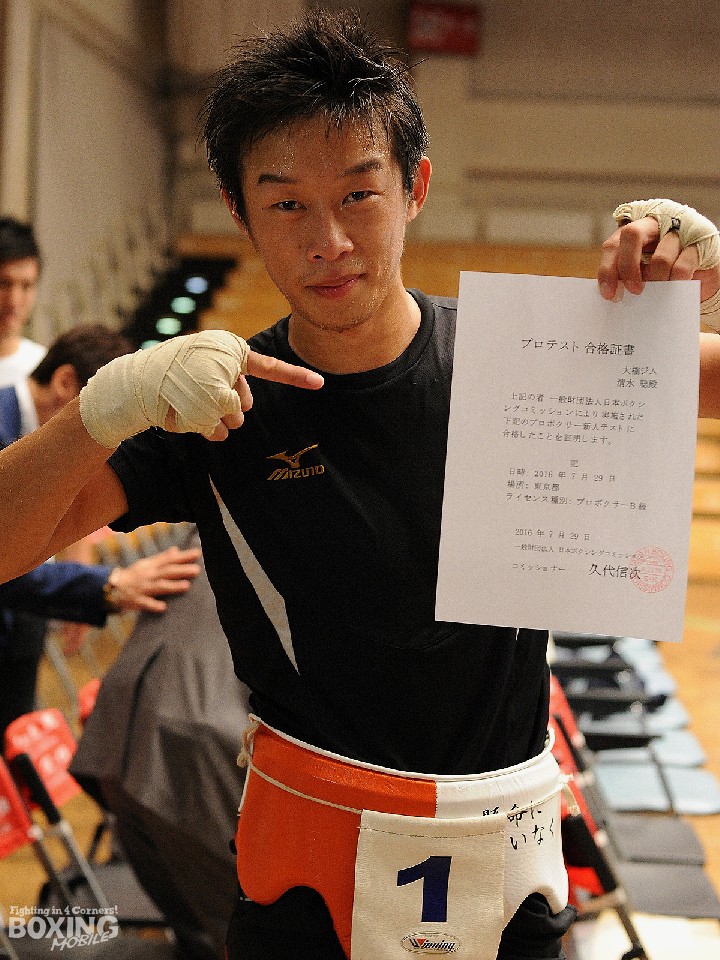 プロテスト 合格証書
大橋ジム
清水 聡殿
上記の者 一般財団法人日本ボクシ
ングコミッションにより実施された
下記のプロボクサー新人テストに
合格したことを証明します。
記
日時: 2016 年 7 月 29 日
場所: 東京都
ライセンス種別: プロボクサーB級
2016 年 7 月 29 日
一般財団法人 日本ボクシングコミッション
コミッショナー 久代信次
MIZUNO
命に
いなく
1
Winning
Fighting in 4 Corners!
BOXING
MOBILE